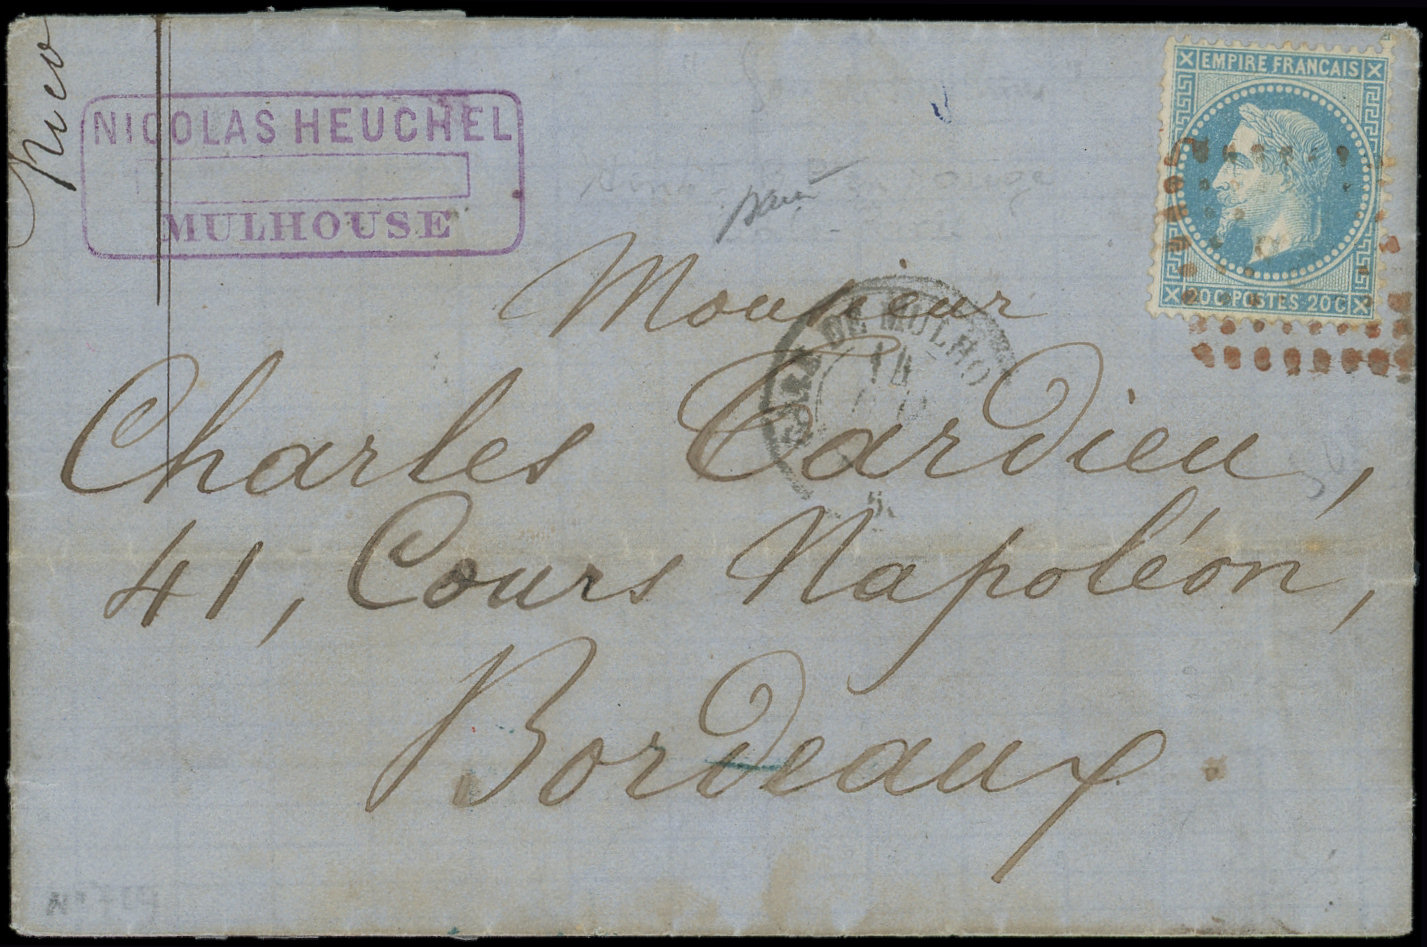 NICOLAS HEUCHEL
MULHOUSE
EMPIRE FRANCAIS
20C POSTES 20C
GARE DE MULHO
14
Monsieur
Charles Tardieu,
41, Cours Napoléon,
Bordeaux.